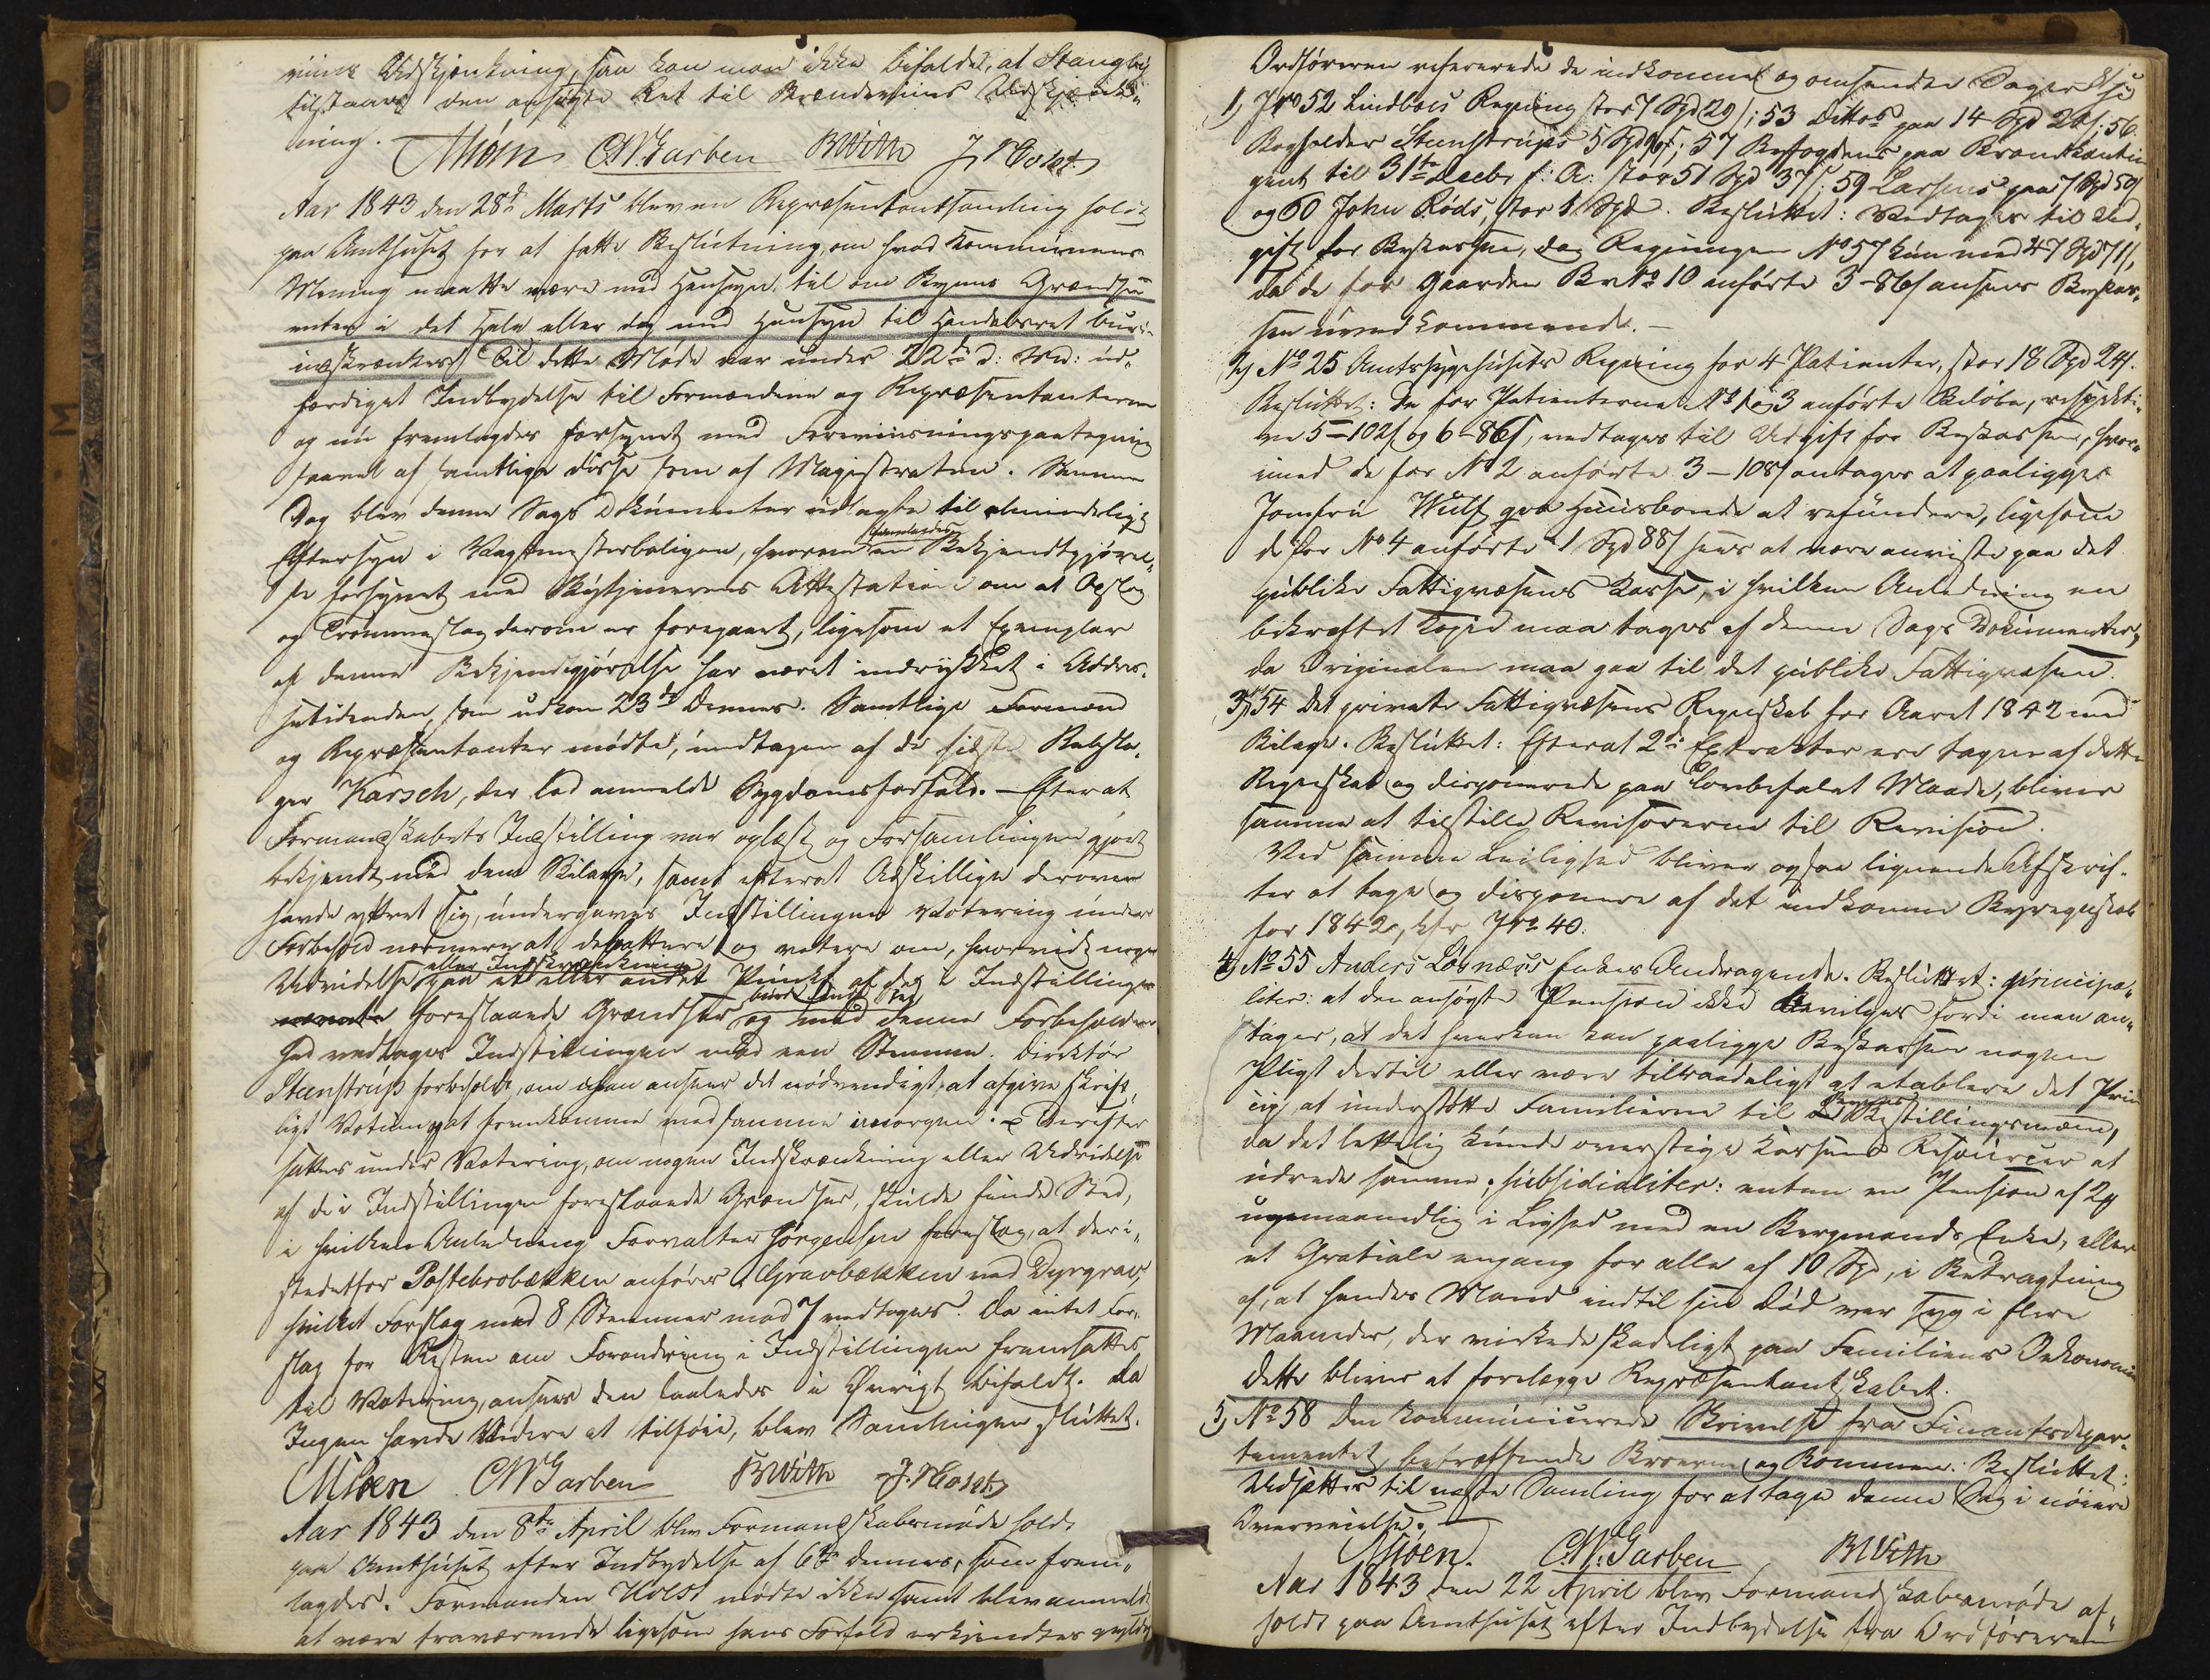 viins Udskjænkning, saa kan man ikke bifalde, at Stangebye
tilstaaes den ansøgte Ret til Brændeviins Udskjænk-
ning.
CW Garben BWith J. Holst
Aar 1843 den 28de Marts blev en Repræsentantsamling holdt
paa Amthuset for at fatte Beslutning, om hvad Kommunens
Mening maatte være med Hensyn til om Byens Grændser
enten i det Hele eller dog med Hensyn til Handelsret burde
indskrænkes. Til dette Møde var under 22de d: Md: ud-
færdiget Indbydelse til Formændene og Repræsentanterne
og nu fremlagdes forsynet med Foreviisningspaategning
saavel af samtlige disse som af Magistraten. Samme
Dag blev denne Sags Dokumenter udlagte til almindeligt
Eftersyn i Vagtmesterboligen, hvorom en Bekjendtgjørel-
se forsynet med Attestation om at Opslag
og Trommeslag derom er foregaaet, ligesom et Exemplar
af denne Bekjendtgjørelse har været indrykket i Adres-
setidenden, som udkom 23de dennes. Samtlige Formænd
og Repræsentanter mødte, undtagen af de sidste Rebsla-
ger Karsch, der lod anmelde Sygdomsforfald. – Efterat
Formandskabets Indstilling var oplæst og Forsamlingen gjort
bekjendt med dens Bilage, samt efterat Adskillige derover
havde yttret sig, undergaves Indstillingen Votering under
Forbehold nærmere at debattere og votere om, hvorvidt nogen
eller Indskrænkning
Udvidelse paa et eller andet Punkt af de i Indstillingen
burde finde Sted
foreslaaede Grændser og med denne Forbeholden-
hed vedtoges Indstillingen mod een Stemme. Direktør
Steenstrup forbeholdt, om han ansaae det nødvendigt, at afgive skrift-
ligt Votum at fremkomme med samme imorgen. – Derefter
sattes under Votering, om nogen Indskrænkning eller Udvidelse
af de i Indstillingen foreslaaede Grændser, skulde finde Sted,
i hvilken Anledning Forvalter Jørgensen foreslog, at der i-
stedetfor Postebrobækken anføres Gravbækken ved Dyrgrav,
hvilket Forslag med 8 Stemmer mod 7 vedtoges. Da intet For-
slag for Resten om Forandring i Indstillingen fremsattes
til Votering, ansaaes den saaledes i Øvrigt bifaldt. Da
Ingen havde Videre at tilføie, blev Samlingen sluttet.
CW Garben BWith J. Holst
Aar 1843 den 8de April blev Formandskabsmøde holdt
paa Amthuset efter Indbydelse af 6te dennes, som frem-
lagdes. Formanden Holst mødte ikke samt blev anmeldt
at være fraværende ligesom hans Forfald erkjendtes gyldig
Ordføreren refererede de indkomne og omsendte Sager
1) JNo 52 Lindboes Regning stor 7 Spd 29 s; 53 Dittos paa 14 Spd 20 s; 56.
Bogholder Steenstrups 5 Spd; 57 Byfogdens paa Brandkontin-
gent til 31te Decbr f: A: stor 51 Spd 37 s; 59 Larsens paa 7 Spd 50 s
og 60 John Røds, stor 1 Spd. Besluttet: Vedtages til Ud-
gift for Bykassen, dog Regningen No 57 kun med 47 Spd 71 s,
da de for Gaarden Br No 10 anførte 3 – 86 s ansees Bykas-
sen uvedkommende. –
2) No 25 Amtssygehusets Regning for 4 Patienter, stor 18 Spd 24 s.
Besluttet: De for Patienterne No 1 og 3 anførte Beløbe, respekti-
ve 5 – 102 s og 6 – 86 s, vedtages til Udgift for Bykassen, hvor-
imod de for No 2 anførte 3 – 108 s antages at paaligge
Jomfru Wulf qva Huusbonde at refundere, ligesom
de for No 4 anførte 1 Spd 88 s sees at være anviste paa det
publike Fattigvæsens Kasse, i hvilken Anledning en
bekræftet Kopie maa tages af denne Sags Dokumenter,
da Originalen maa gaa til det publike Fattigvæsen.
3) 54 Det private Fattigvæsens Regnskab for Aaret 1842 med
Bilage. Besluttet: Efterat 2de Extrakter ere tagne af dette
Regnskab og disponerede paa lovbefalet Maade, bliver
samme at tilstille Revisorerne til Revision.
Ved samme Leilighed bliver ogsaa lignende Afskrif-
ter at tage og disponere af det indkomne Byregnskab
for 1842, cfr JNo 40.
4) No 55 Anders Løvnæss Enkes Andragende. Besluttet: principa-
liter: at den ansøgte Pension ikke bevilges fordi man an-
tager, at det hverken kan paaligge Bykassen nogen
Pligt dertil eller være tilraadeligt at etablere det Prin-
cip, at understøtte Familierne til Bestillingsmænd,
da det lettelig kunde overstige Kassens Resourcer at
udrede samme; subsidialiter: enten en Pension af 24
ugemaanedlig i Lighed med en Bergmands Enke, eller
et Gratiale engang for alle af 10 Spd, i Betragtning
af, at hendes Mand indtil sin Død var syg i flere
Maaneder, der virkede skadeligt paa Familiens Oekonomie
Dette bliver at forelægge Repræsentantskabet.
5) No 58 den kommunicerede Skrivelse fra Finantsdepar-
tementet betræffende Broerne og Bommen. Besluttet:
Udsættes til næste Samling for at tage denne Sag i nøiere
Overveielse. –
C.W. Garben BWith
Aar 1843 den 22 April blev Formandskabsmøde af-
holdt paa Amthuset efter Indbydelse fra Ordføreren